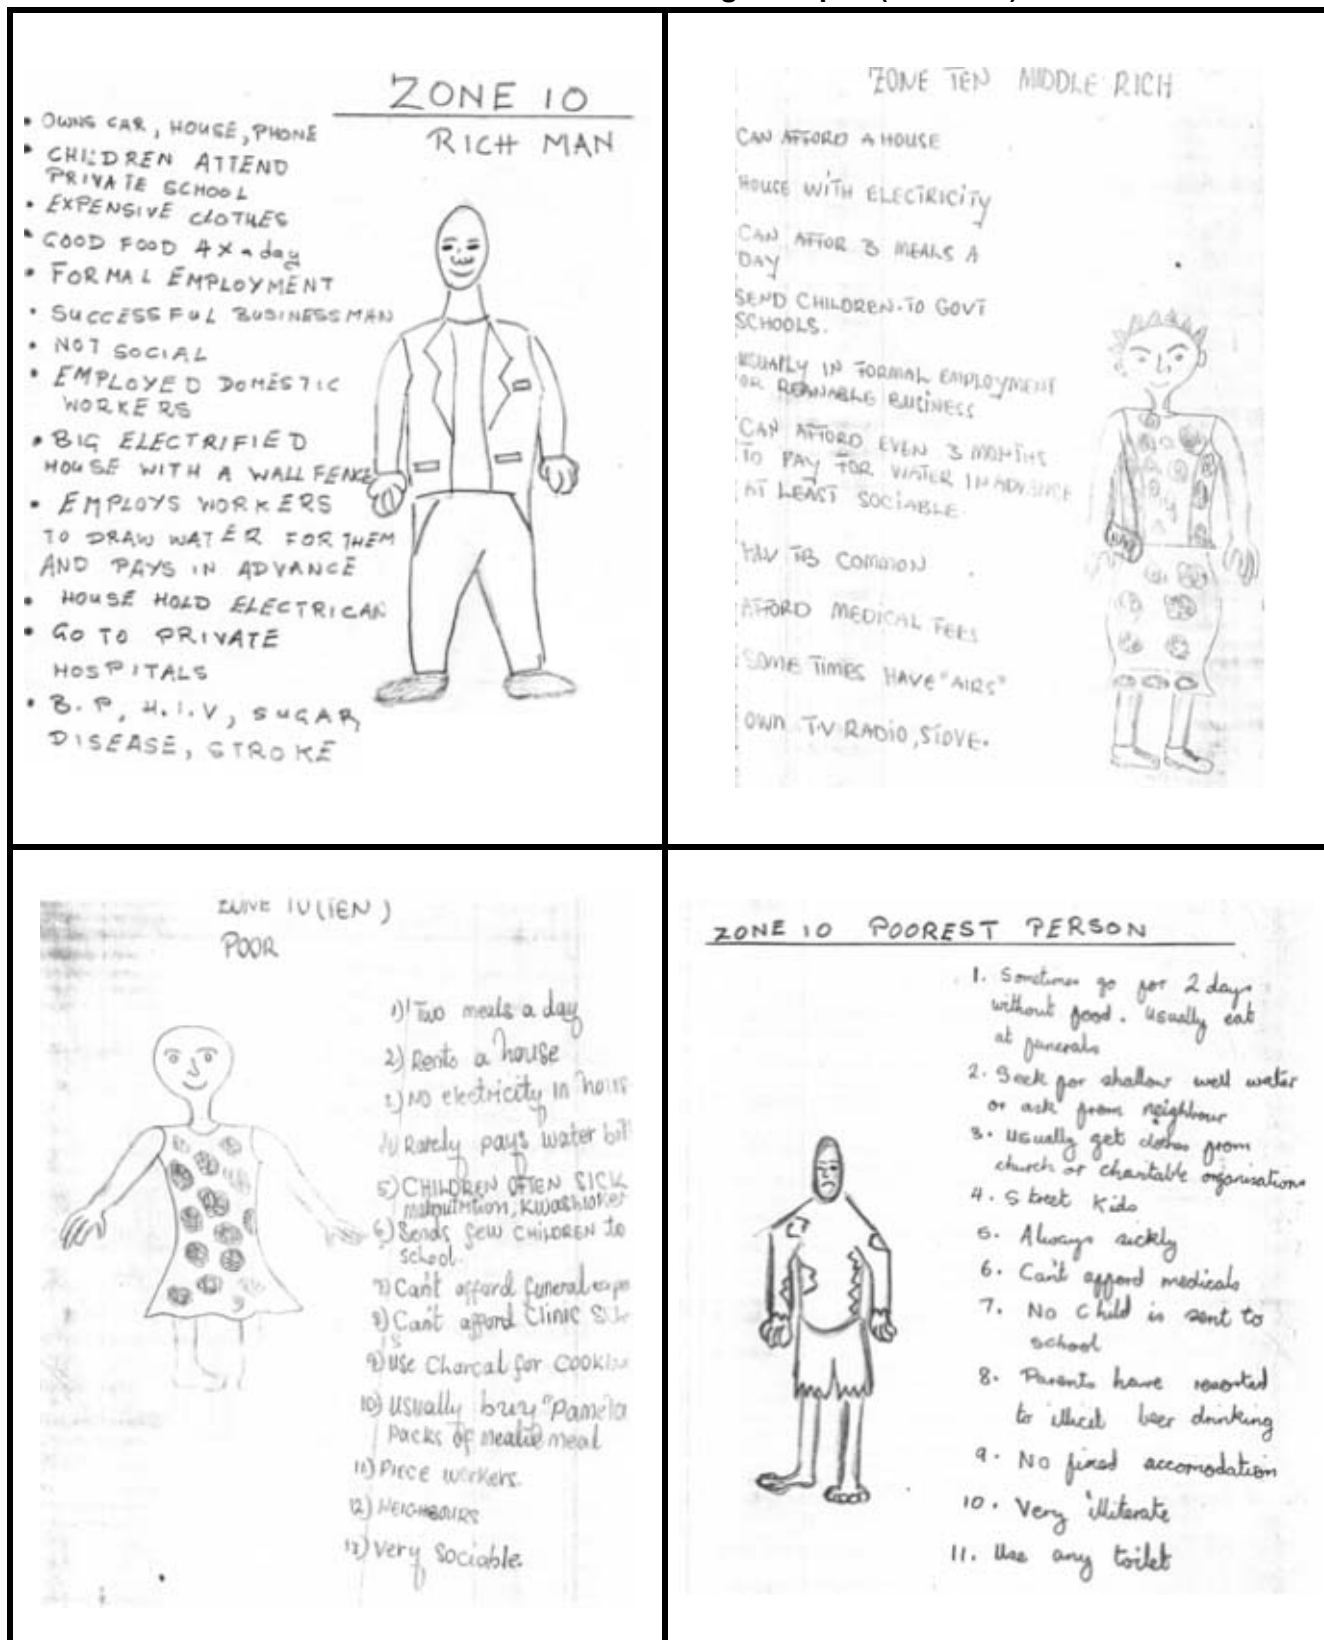 ZONE 10
RICH MAN
• OWNS CAR, HOUSE, PHONE
• CHILDREN ATTEND
PRIVATE SCHOOL
• EXPENSIVE CLOTHES
• GOOD FOOD 4 X a day
• FORMAL EMPLOYMENT
• SUCCESSFUL BUSINESSMAN
• NOT SOCIAL
• EMPLOYED DOMESTIC
WORKERS
• BIG ELECTRIFIED
HOUSE WITH A WALL FENCE
• EMPLOYS WORKERS
TO DRAW WATER FOR THEM
AND PAYS IN ADVANCE
• HOUSE HOLD ELECTRICAN
• GO TO PRIVATE
HOSPITALS
• B.P, H.I.V, SUGAR
DISEASE, STROKE
ZONE TEN MIDDLE RICH
CAN AFFORD A HOUSE
HOUSE WITH ELECTRICITY
CAN AFFOR 3 MEALS A
DAY
SEND CHILDREN TO GOVT
SCHOOLS.
USUALLY IN FORMAL EMPLOYMENT
OR REANABLE BUSINESS
CAN AFFORD EVEN 3 MONTHS
TO PAY FOR WATER IN ADVANCE
AT LEAST SOCIABLE
TB COMMON
AFFORD MEDICAL FEES
SOME TIMES HAVE "AIRS"
OWN T.V RADIO, STOVE.
ZONE 10 (TEN)
POOR
1) Two meals a day
2) Rents a house
3) NO electricity in hous
4) Rarely pays water bil
5) CHILDREN OFTEN SICK
malnutrition, kwashioker
6) Sends few CHILDREN to
school.
7) Can't afford funeral expe
8) Can't afford Clinic
9) Use Charcal for Cookin
10) Usually buy "Pamela
Packs of mealie meal
11) PIECE workers.
12) NEIGHBOURS
13) Very Sociable.
ZONE 10 POOREST PERSON
1. Sometimes go for 2 days
without food. Usually eat
at funerals
2. Seek for shallow well water
or ask from neighbour
3. Usually get clothes from
church or charitable organisations
4. Street Kids
5. Always sickly
6. Can't afford medicals
7. No Child is sent to
school
8. Parents have resorted
to illicit beer drinking
9. No fixed accomodation
10. Very illiterate
11. Use any toilet